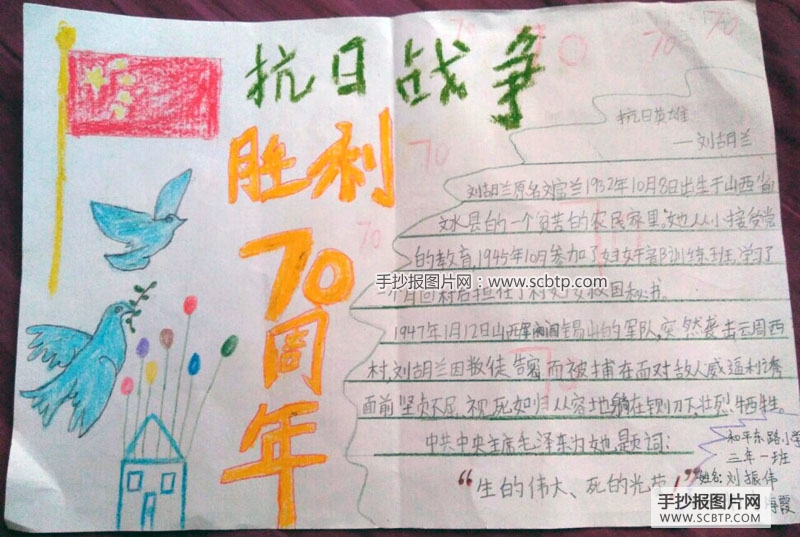 抗日战争
胜利
70
周年
70
70
70
70
70
70
抗日英雄
——刘胡兰
刘胡兰原名刘富兰1932年10月8日出生于山西省
文水县的一个贫苦的农民家里。她从小接受党
的教育,1945年10月参加了妇女干部训练班,学习了
一个月回村后担任了村妇女救国秘书。
手抄报图片网:www.scbtp.com
1947年1月12日山西军阀阎锡山的军队,突然袭击云周西
村,刘胡兰因叛徒告密而被捕在面对敌人威逼利诱
面前坚贞不屈,视死如归从容地躺在铡刀下壮烈牺牲。
中共中央主席毛泽东为她题词:
“生的伟大、死的光荣!”
和平东路小学
三年一班
姓名:刘振伟
海霞
手抄报图片网
WWW.SCBTP.COM